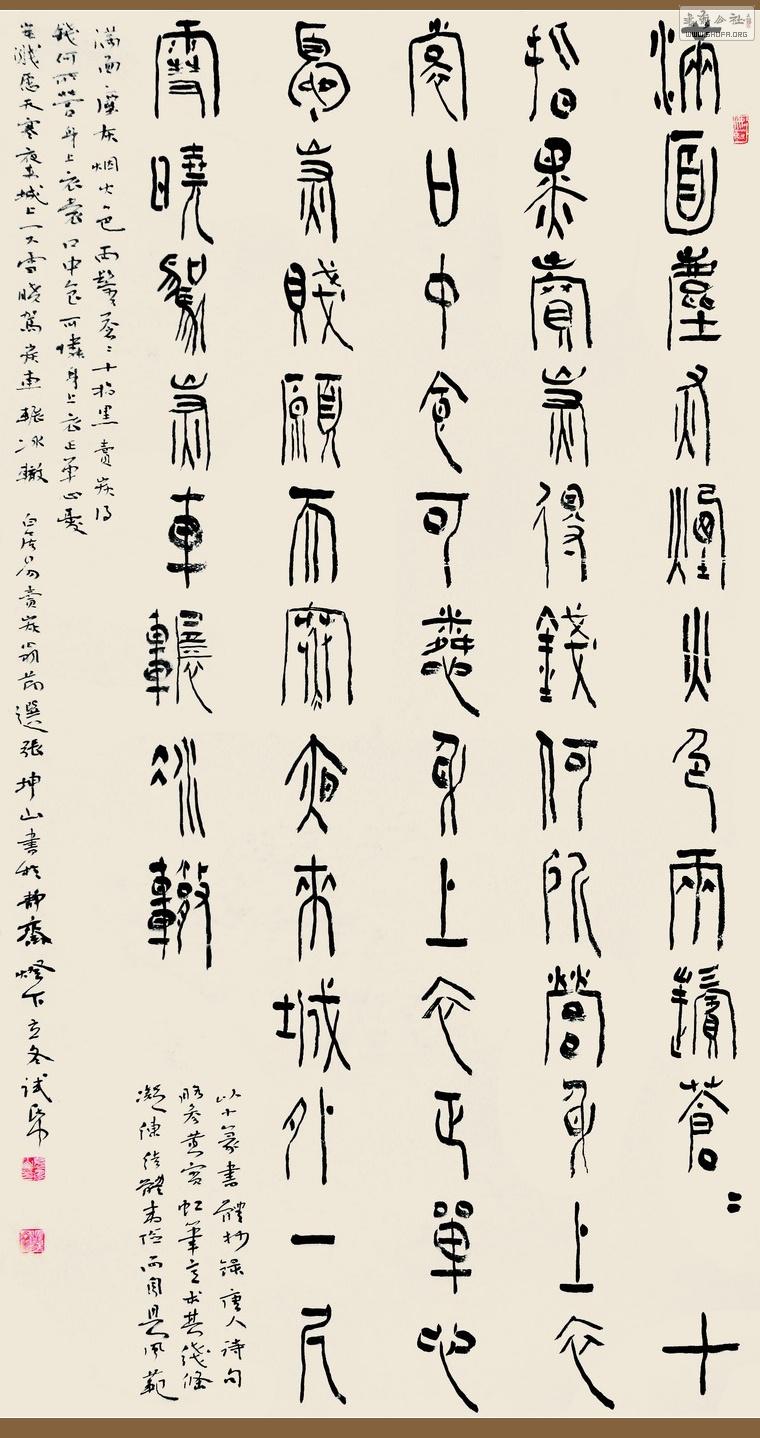 滿面塵灰煙火色兩鬢蒼〻十
指黑賣炭得錢何所營身上衣
裳口中食可憐身上衣正單心
憂炭賤願天寒夜來城外一尺
雪曉駕炭車輾冰轍
以小篆書體抄錄唐人詩句
略參黃賓虹筆意求其線條
凝練結體素而自具風範
滿面塵灰烟火色兩鬢蒼〻十指黑賣炭得
錢何所營身上衣裳口中食可憐身上衣正單心憂
炭賤愿天寒夜來城上一尺雪曉駕炭車輾冰轍 白居易賣炭翁節選張坤山書於靜齋燈下立冬試筆
書法公社
WWW.SHUFA.ORG